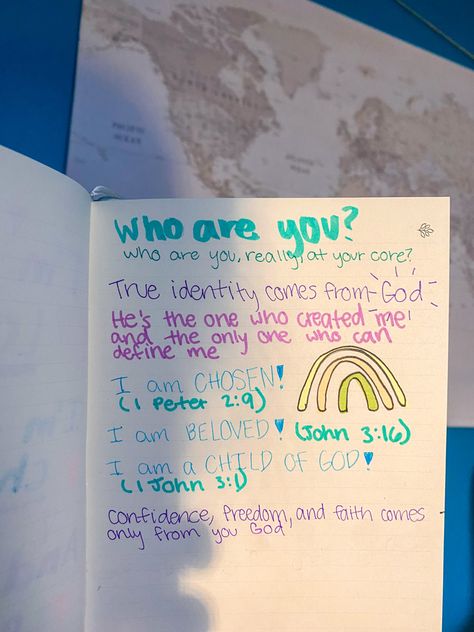 PACIFIC
OCEAN
who are you?
who are you, really, at your core?
True identity comes from God
He's the one who created me
and the only one who can
define me
I am CHOSEN!
(1 Peter 2:9)
I am BELOVED! (John 3:16)
I am a CHILD OF GOD!
(1 John 3:1)
confidence, freedom, and faith comes
only from you God